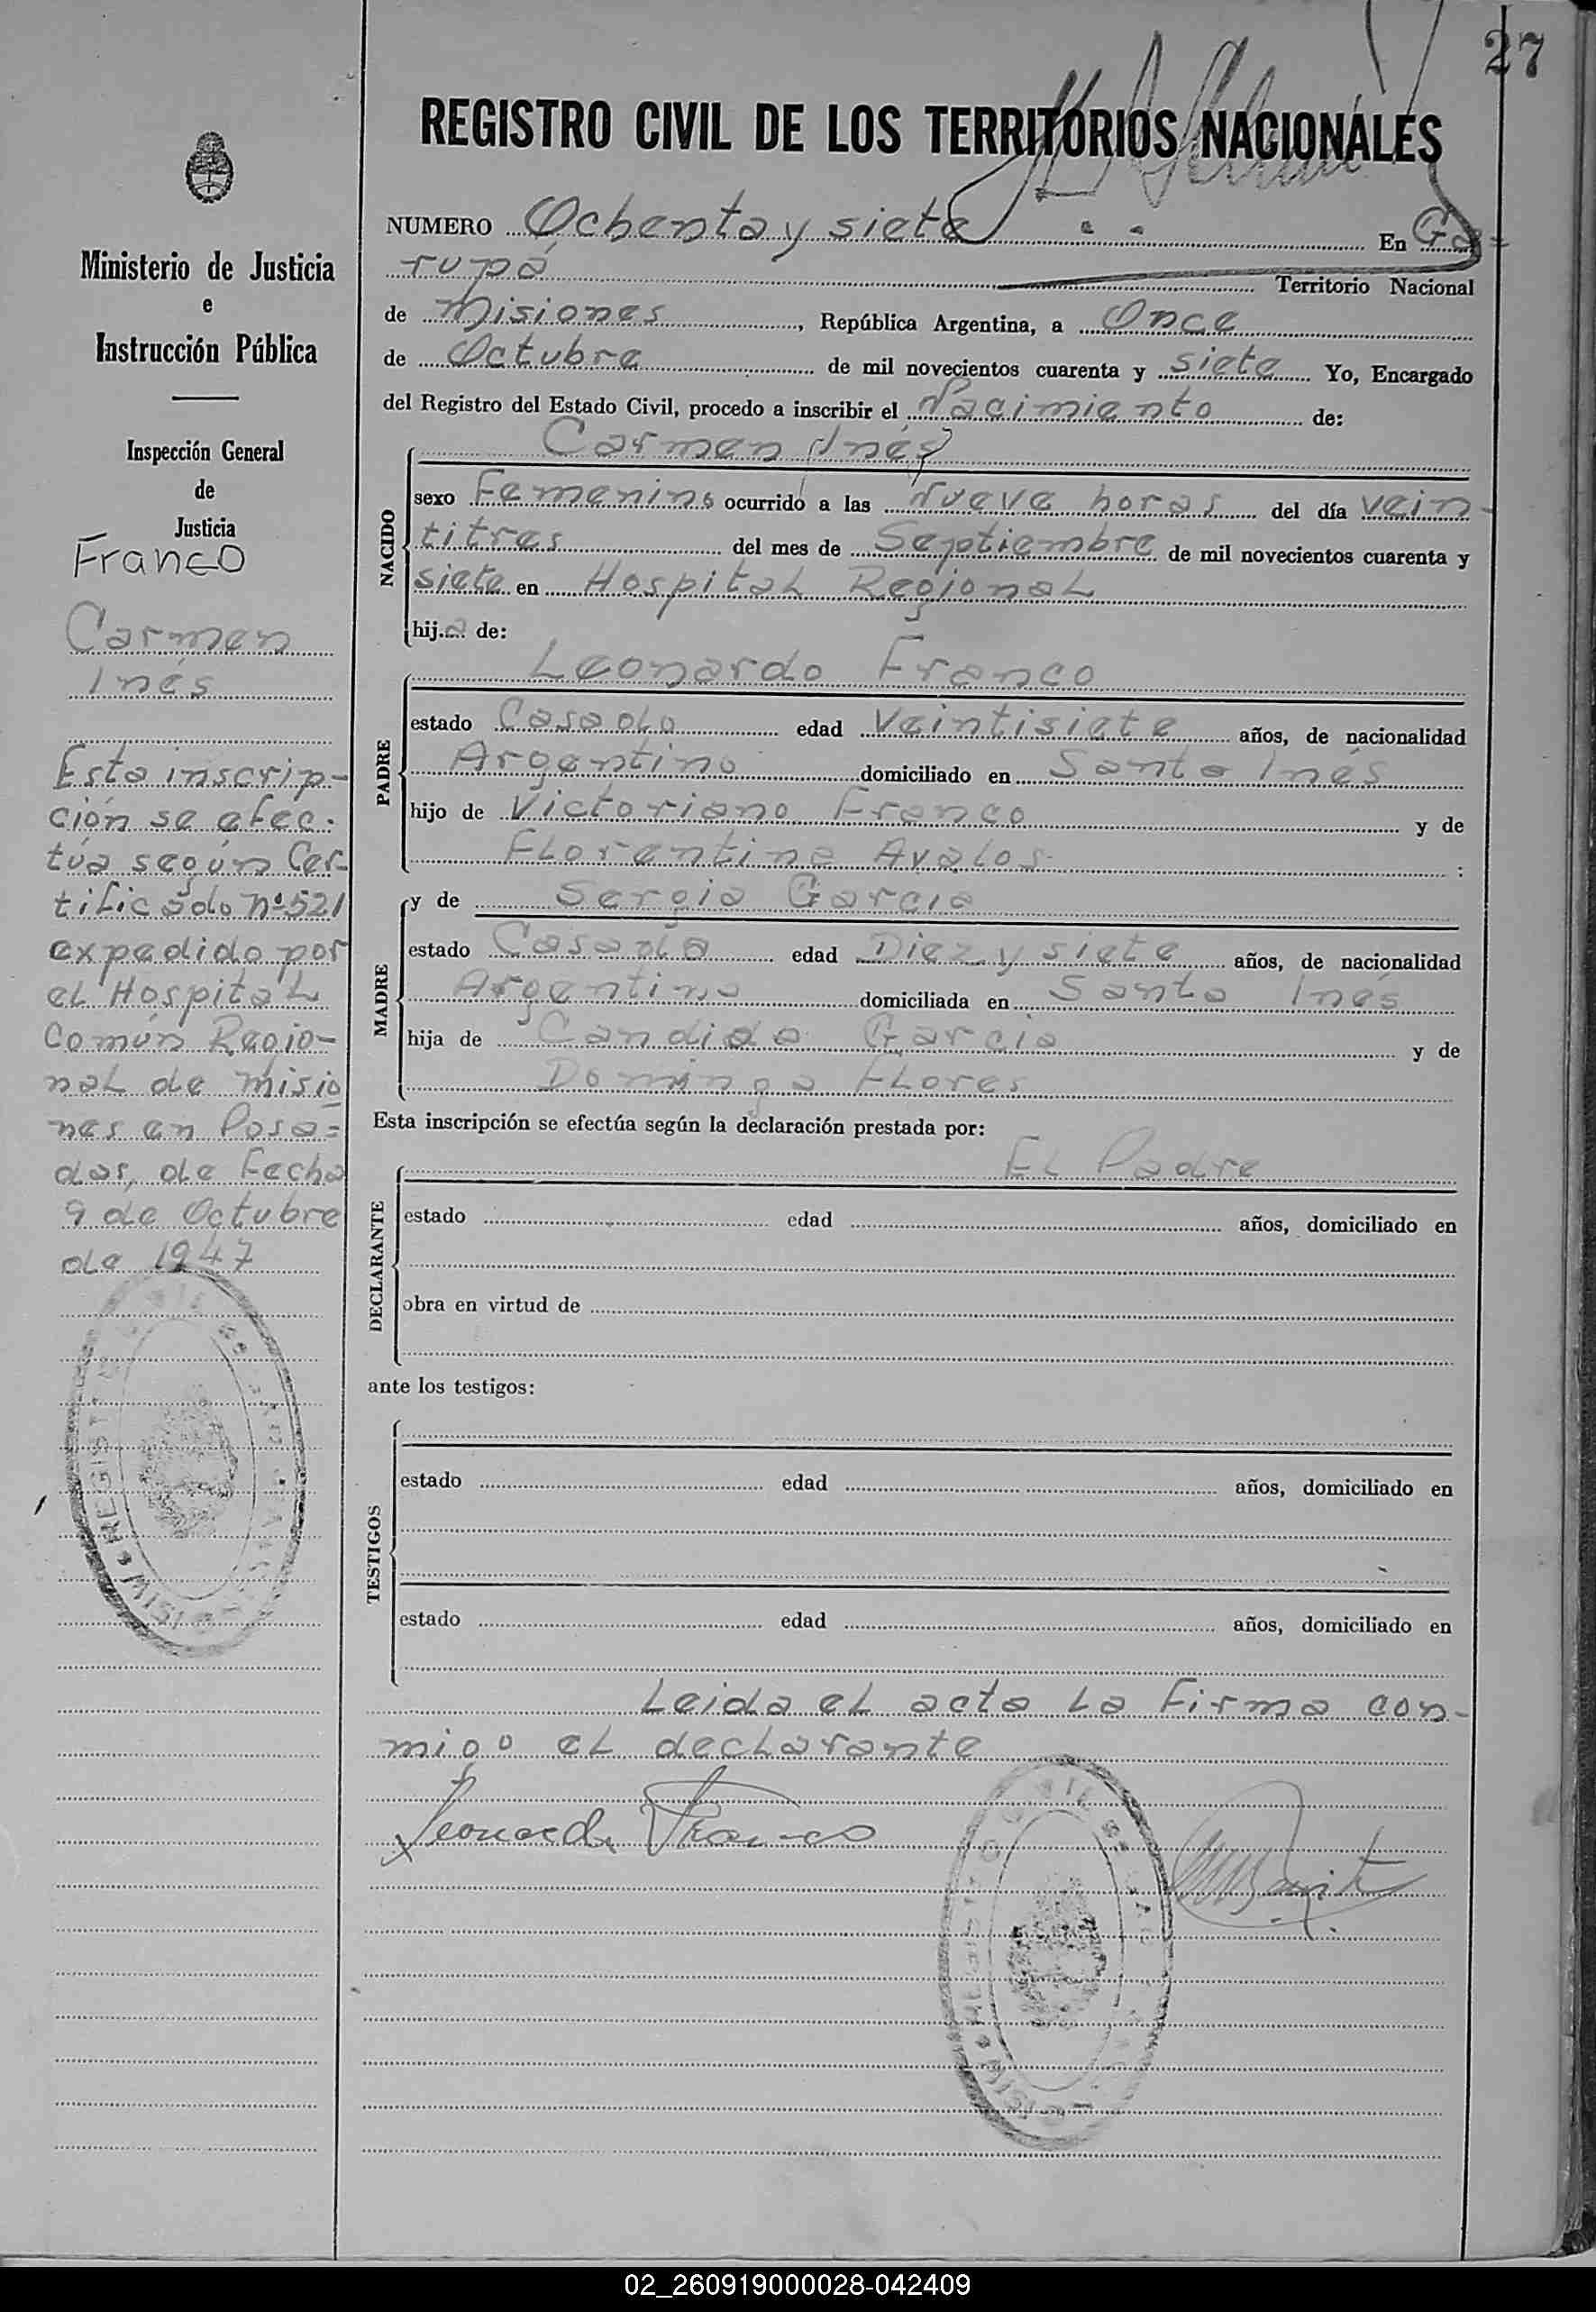 27
REGISTRO CIVIL DE LOS TERRITORIOS NACIONALES
Ministerio de Justicia
e
Instrucción Pública
Inspección General
de
Justicia
Franco
Carmen
Inés
Esta inscrip-
ción se efec-
túa según Cer-
tificado Nº 521
expedido por
el Hospital
Común Regio-
nal de Misio
nes en Posa=
das, de Fecha
9 de Octubre
de 1947
NUMERO Ochenta y siete En Ga=
rupá Territorio Nacional
de Misiones, República Argentina, a Once
de Octubre de mil novecientos cuarenta y siete Yo, Encargado
del Registro del Estado Civil, procedo a inscribir el Nacimiento de:
Carmen Inés
NACIDO
sexo Femenino ocurrido a las Nueve horas del día vein-
titres del mes de Septiembre de mil novecientos cuarenta y
siete en Hospital Regional
hija de:
Leonardo Franco
PADRE
estado Casado edad Veintisiete años, de nacionalidad
Argentino domiciliado en Santa Inés
hijo de Victoriano Franco y de
Florentina Avalos :
MADRE
y de Sergia Garcia
estado Casada edad Diez y siete años, de nacionalidad
Argentina domiciliada en Santa Inés
hija de Candido Garcia y de
Dominga Flores
Esta inscripción se efectúa según la declaración prestada por:
El Padre
DECLARANTE
estado edad años, domiciliado en
obra en virtud de
ante los testigos:
TESTIGOS
estado edad años, domiciliado en
estado edad años, domiciliado en
Leida el acta la Firma con-
migo el declarante
Leonardo Franco
REGISTR
MISI
02_260919000028-042409